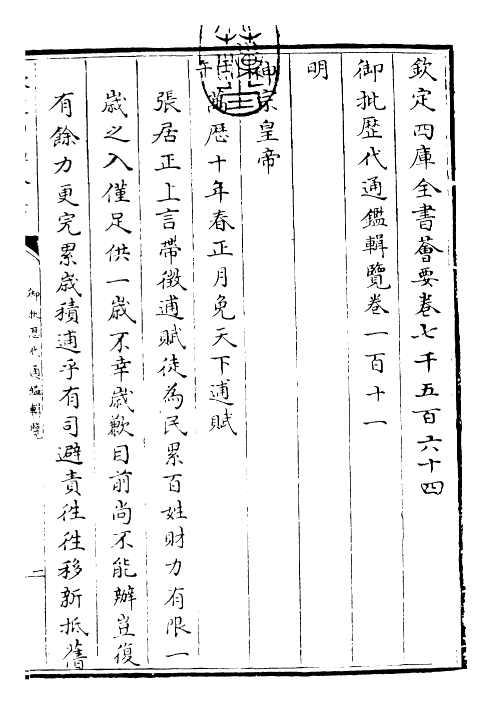 欽定四庫全書薈要卷七千五百六十四
御批歷代通鑑輯覽卷一百十一
明
神宗皇帝
午
萬歷十年春正月免天下逋賦
張居正上言帶徵逋賦徒為民累百姓財力有限一
歲之入僅足供一歲不幸歲歉目前尚不能辦豈復
有餘力更完累歲積逋乎有司避責徃徃移新抵舊
御批歷代通鑑輯覽
二